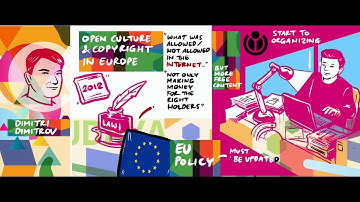 OPEN CULTURE
& COPYRIGHT
IN EUROPE
2012
LAW
DIMITRI
DIMITROV
"WHAT WAS
ALLOWED/
NOT ALLOWED
IN THE
INTERNET.."
"NOT ONLY
MAKING
MONEY
FOR THE
RIGHT
HOLDERS"
EU
POLICY
MUST
BE UPDATED
START TO
ORGANIZING
BUT
MORE
FREE
CONTENT